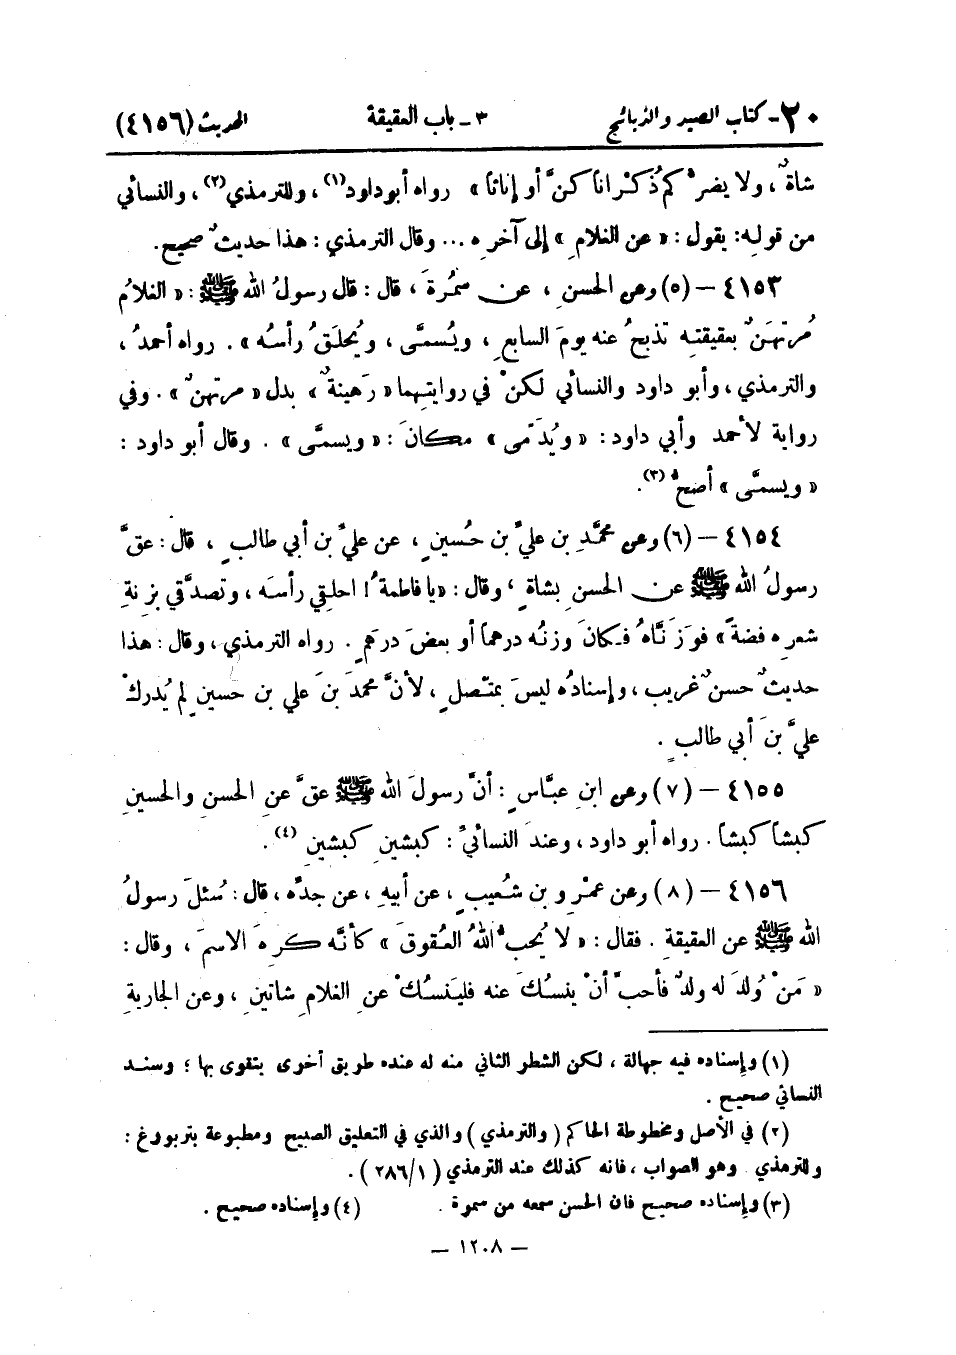 ٢٠- كتاب الصيد والذبائح ٣ - باب العقيقة الحديث (٤١٥٦)
شاةٌ، ولا يضرُّكم ذُكْراناً كنَّ أو إناثاً» رواه أبو داود(١)، وللترمذي(٢)، والنسائي
من قوله: يقول: «عن الغلامِ» إلى آخرِه ... وقال الترمذي: هذا حديثٌ صحيح.
٤١٥٣ - (٥) وعن الحسنِ، عن سَمُرةَ، قال: قال رسولُ الله ﷺ: «الغلامُ
مُرتهَنٌ بعقيقتِه تذبحُ عنه يومَ السابعِ، ويُسمَّى، ويُحلَقُ رأسُه». رواه أحمدُ،
والترمذي، وأبو داود والنسائي لكنْ في روايتِهما «رَهينةٌ» بدل «مرتهنٌ». وفي
رواية لأحمد وأبي داود: «ويُدَمّى» مكانَ: «ويسمَّى». وقال أبو داود:
«ويسمَّى» أصحُّ(٣).
٤١٥٤ - (٦) وعن محمَّدِ بن عليِّ بن حُسينٍ، عن عليِّ بن أبي طالبٍ، قال: عقَّ
رسولُ الله ﷺ عن الحسنِ بشاةٍ، وقال: «يا فاطمةُ! احلِقي رأسَه، وتصدَّقي بزِنةِ
شعرِه فضةً» فوَزَنَّاهُ فكانَ وزنُه درهماً أو بعضَ درهمٍ. رواه الترمذي، وقال: هذا
حديثٌ حسنٌ غريب، وإسنادُه ليسَ بمتّصلٍ، لأنَّ محمدَ بنَ علي بن حسينٍ لم يُدركْ
عليَّ بنَ أبي طالبٍ.
٤١٥٥ - (٧) وعن ابنِ عبَّاسٍ: أنَّ رسولَ الله ﷺ عقَّ عنِ الحسنِ والحسينِ
كبشاً كبشاً. رواه أبو داود، وعندَ النسائيِّ: كبشينِ كبشينِ(٤).
٤١٥٦ - (٨) وعن عمْرِو بن شُعيبٍ، عن أبيهِ، عن جدِّه، قال: سُئلَ رسولُ
الله ﷺ عن العقيقةِ. فقال: «لا يُحبُّ اللهُ العُقوقَ» كأنَّه كرِهَ الاسمَ، وقال:
«مَنْ وُلدَ له ولدٌ فأحبَّ أنْ ينسُكَ عنه فلينسُكْ عنِ الغلامِ شاتينِ، وعن الجاريةِ
(١) وإسناده فيه جهالة، لكن الشطر الثاني منه له عنده طريق أخرى يتقوى بها؛ وسند
النسائي صحيح.
(٢) في الأصل ومخطوطة الحاكم (والترمذي) والذي في التعليق الصبيح ومطبوعة بتربورغ:
وللترمذي وهو الصواب، فانه كذلك عند الترمذي (٢٨٦/١).
(٣) وإسناده صحيح فان الحسن سمعه من سمرة. (٤) وإسناده صحيح.
- ١٢٠٨ -